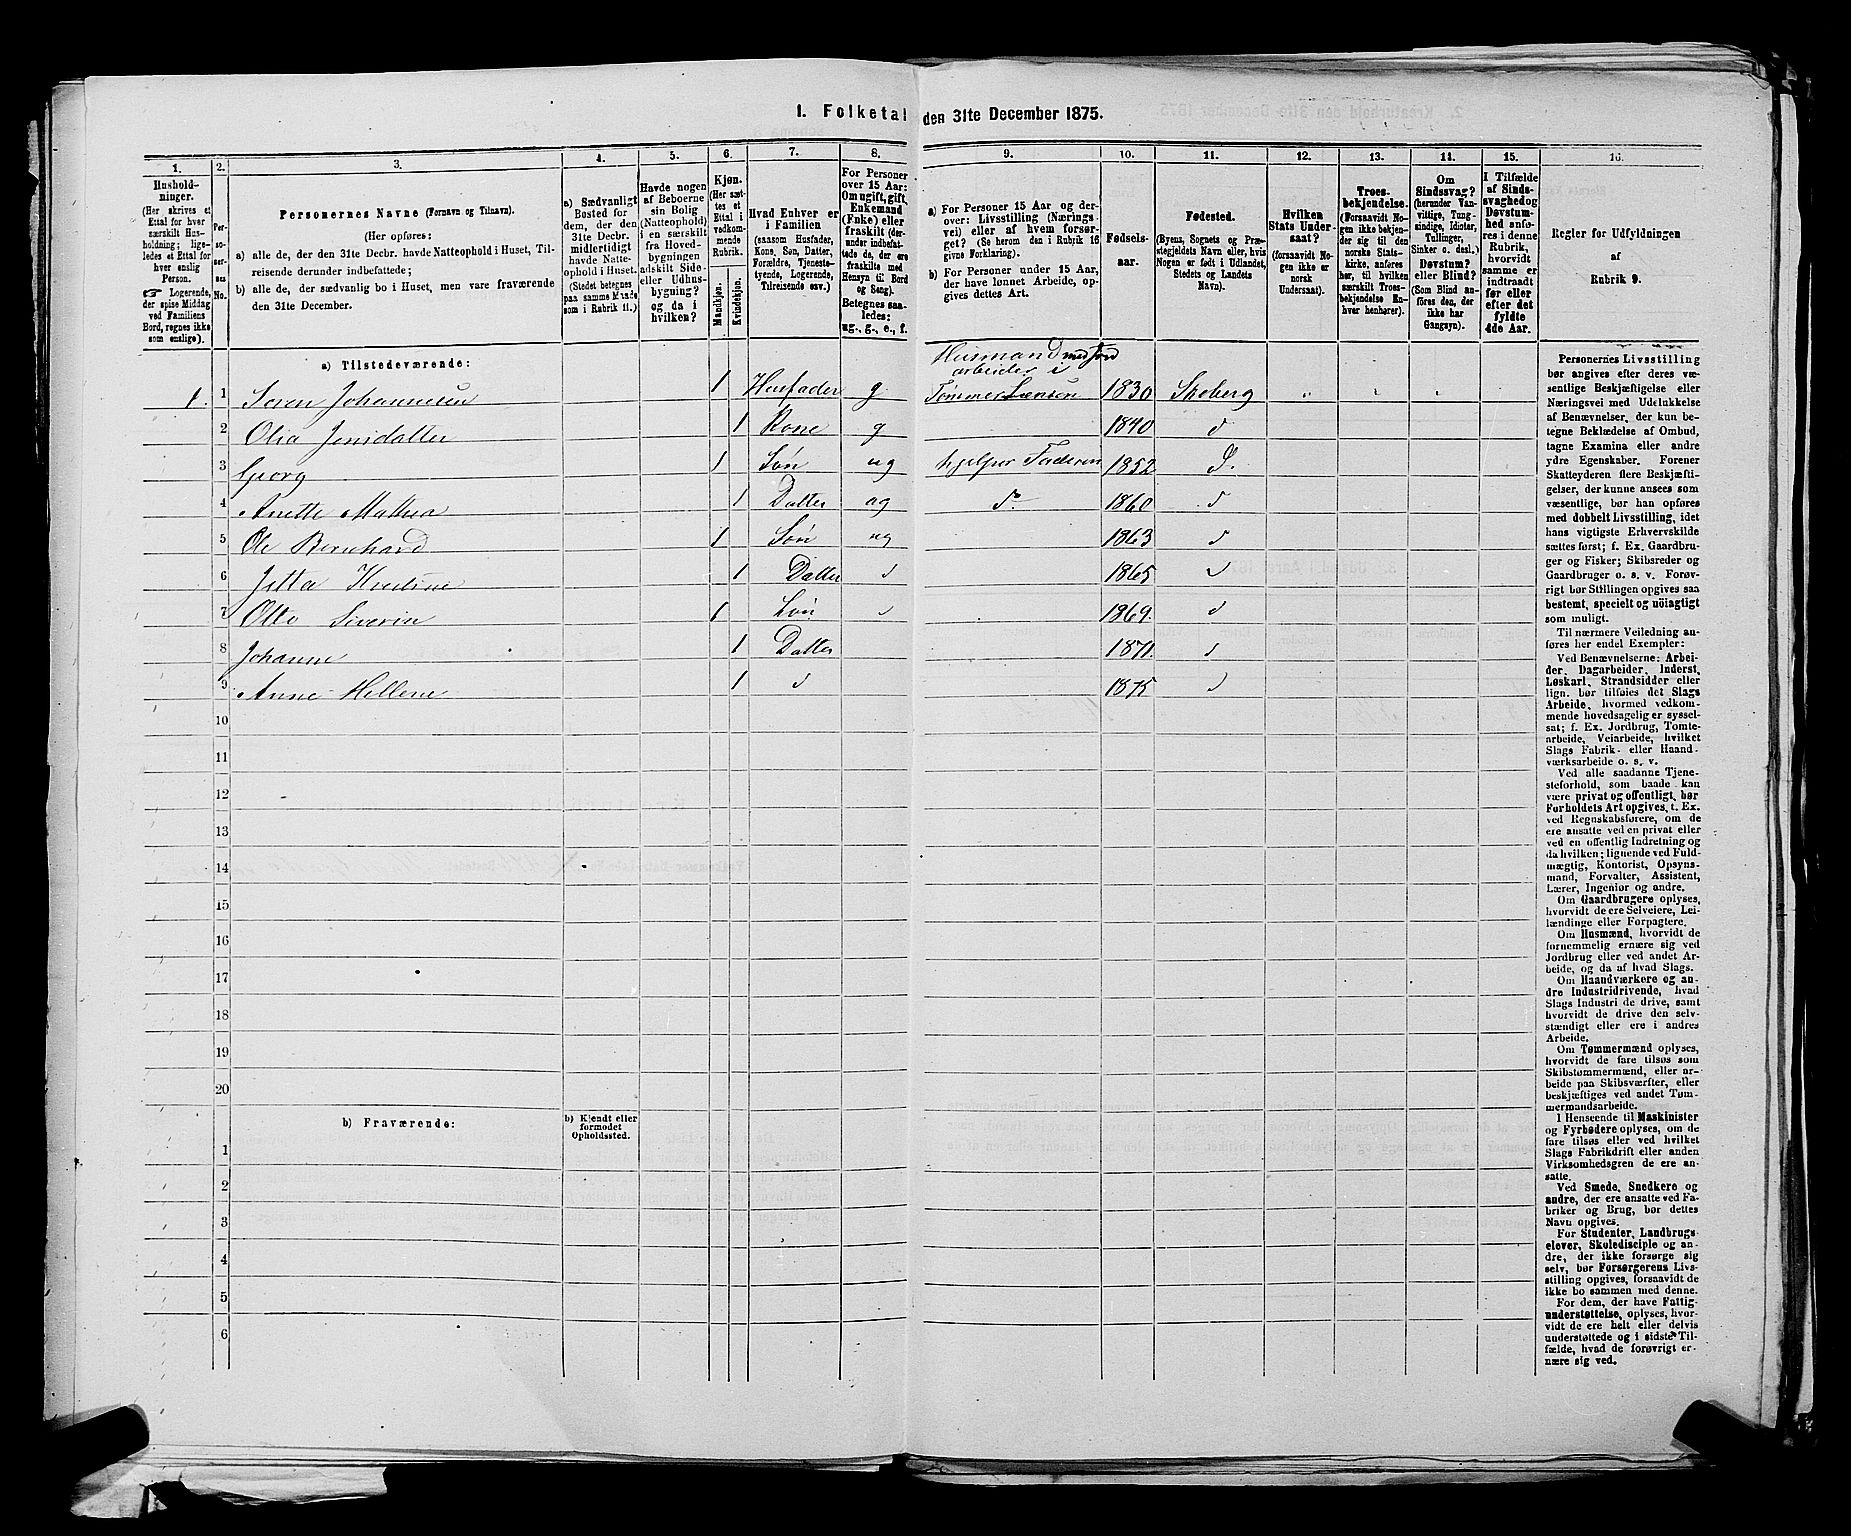 1. Folketal den 31te December 1875.
1. 2. 3. 4. 5. 6. 7. 8. 9. 10. 11. 12. 13. 14. 15. 16.
Hushold-
ninger.
(Her skrives et
Ettal for hver
særskilt Hus-
holdning; lige-
ledes et Ettal for
hver enslig
Person.
☞ Logerende,
der spise Middag
ved Familiens
Bord, regnes ikke
som enslige).
Per-
so-
ner-
nes
No.
Personernes Navne (Fornavn og Tilnavn).
(Her opføres:
a) alle de, der den 31te Decbr. havde Natteophold i Huset, Til-
reisende derunder indbefattede;
b) alle de, der sædvanlig bo i Huset, men vare fraværende
den 31te December.
a) Sædvanligt
Bosted for
dem, der den
31te Decbr.
midlertidigt
havde Natte-
ophold i Huset.
(Stedet betegnes
paa samme Maade
som i Rubrik 11.)
Havde nogen
af Beboerne
sin Bolig
(Natteophold)
i en særskilt
fra Hoved-
bygningen
adskilt Side-
eller Udhus-
bygning?
og da i
hvilken?
Kjøn.
(Her sæt-
tes et
Ettal i
vedkom-
mende
Rubrik.
Mandkjøn.
Kvindekjøn.
Hvad Enhver er
i Familien
(saasom Husfader,
Kone, Søn, Datter,
Forældre, Tjeneste-
tyende, Logerende,
Tilreisende osv.)
For Personer
over 15 Aar:
Om ugift, gift,
Enkemand
(Enke) eller
fraskilt (der-
under indbefat-
tede de, der ere
fraskilte med
Hensyn til Bord
og Seng).
Betegnes saa-
ledes:
ug., g., e., f.
a) For Personer 15 Aar og der-
over: Livsstilling (Nærings-
vei) eller af hvem forsør-
get? (Se herom den i Rubrik 16
givne Forklaring).
b) For Personer under 15 Aar,
der have lønnet Arbeide, op-
gives dettes Art.
Fødsels-
aar.
Fødested.
(Byens, Sognets og Præ-
stegjeldets Navn eller, hvis
Nogen er født i Udlandet,
Stedets og Landets
Navn).
Hvilken
Stats Under-
saat?
(forsaavidt No-
gen ikke er
norsk
Undersaat).
Troes-
bekjendelse.
(Forsaavidt No-
gen ikke bekjen-
der sig til den
norske Stats-
kirke, anføres
her, til hvilken
særskilt Troes-
bekjendelse En-
hver henhører).
Om
Sindssvag?
(herunder Van-
vittige, Tung-
sindige, Idioter,
Tullinger,
Sinker o. desl.)
Døvstum?
eller Blind?
(Som Blind an-
føres den, der
ikke har
Gangsyn).
I Tilfælde
af Sinds-
svaghed og
Døvstum-
hed anfø-
res i denne
Rubrik,
hvorvidt
samme er
indtraadt
før eller
efter det
fyldte
4de Aar.
Regler for Udfyldningen
af
Rubrik 9.
a) Tilstedeværende:
Husmand med Jord
arbeider i
1. 1 Søren Johannesen 1 Husfader g Tømmer Lænsen 1830 Skoberg
2 Olia Jensdatter 1 Kone g 1840 d
3 Georg 1 Søn ug hjelper Faderen 1852 D.
4 Anette Mathea 1 Datter ug do 1860 d
5 Ole Bernhard 1 Søn ug 1863 d
6 Jetta Kristine 1 Datter d 1865 d
7 Otto Siverin 1 Søn d 1869. d
8 Johanne 1 Datter 1871. d
9 Anne Hellene 1 d 1875 d
10
11
12
13
14
15
16
17
18
19
20
b) Fraværende:
b) Kjendt eller
formodet
Opholdssted.
1
2
3
4
5
6
Personernes Livsstilling
bør angives efter deres væ-
sentlige Beskjæftigelse eller
Næringsvei med Udelukkelse
af Benævnelser, der kun be-
tegne Beklædelse af Ombud,
tagne Examina eller andre
ydre Egenskaber. Forener
Skatteyderen flere Beskjæfti-
gelser, der kunne ansees som
væsentlige, bør han opføres
med dobbelt Livsstilling, idet
hans vigtigste Erhvervskilde
sættes først; f. Ex. Gaardbru-
ger og Fisker; Skibsreder og
Gaardbruger o. s. v. Forøv-
rigt bør Stillingen opgives saa
bestemt, specielt og nøiagtigt
som muligt.
Til nærmere Veiledning an-
føres her endel Exempler:
Ved Benævnelserne: Arbei-
der, Dagarbeider, Inderst,
Løskarl, Strandsidder eller
lign. bør tilføies det Slags
Arbeide, hvormed vedkom-
mende hovedsagelig er syssel-
sat; f. Ex. Jordbrug, Tomte-
arbeide, Veiarbeide, hvilket
Slags Fabrik- eller Haand-
værksarbeide o. s. v.
Ved alle saadanne Tjene-
steforhold, som baade kan
være privat og offentligt, bør
Forholdets Art opgives, t. Ex.
ved Regnskabsførere, om de
ere ansatte ved en privat eller
ved en offentlig Indretning og
da hvilken; lignende ved Fuld-
mægtig, Kontorist, Opsyns-
mand, Forvalter, Assistent,
Lærer, Ingeniør og andre.
Om Gaardbrugere oplyses,
hvorvidt de ere Selveiere, Lei-
lændinge eller Forpagtere.
Om Husmænd, hvorvidt de
fornemmelig ernære sig ved
Jordbrug eller ved andet Ar-
beide, og da af hvad Slags.
Om Haandværkere og an-
dre Industridrivende, hvad
Slags Industri de drive, samt
hvorvidt de drive den selv-
stændigt eller ere i andres
Arbeide.
Om Tømmermænd oplyses,
hvorvidt de fare tilsøs som
Skibstømmermænd, eller ar-
beide paa Skibsværfter, eller
beskjæftiges ved andet Tøm-
mermandsarbeide.
I Henseende til Maskinister
og Fyrbødere oplyses, om de
fare tilsøs eller ved hvilket
Slags Fabrikdrift eller anden
Virksomhedsgren de ere an-
satte.
Ved Smede, Snedkere og
andre, der ere ansatte ved Fa-
briker og Brug, bør dettes
Navn opgives.
For Studenter, Landbrugs-
elever, Skoledisciple og an-
dre, der ikke forsørge sig
selv, bør Forsørgerens Livs-
stilling opgives, forsaavidt de
ikke bo sammen med denne.
For dem, der have Fattig-
understøttelse, oplyses, hvor-
vidt de ere helt eller delvis
understøttede og i sidste Til-
fælde, hvad de forøvrigt er-
nære sig ved.